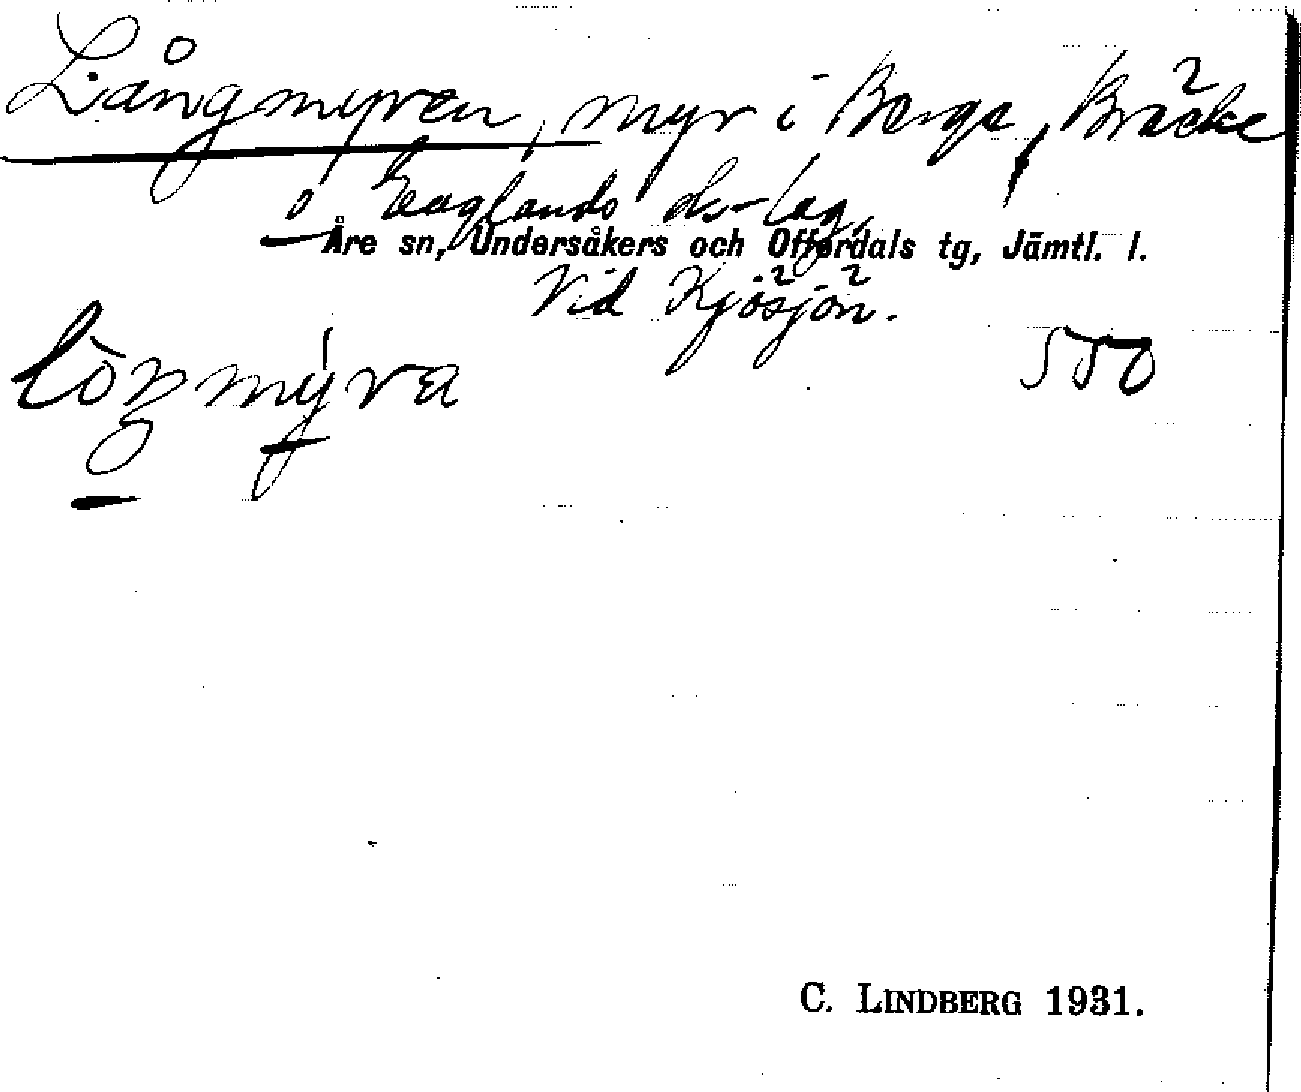 Långmyren, myr i Berge, Bräcke
o Englands ds-lag,
Åre sn, Undersåkers och Offerdals tg, Jämtl. l.
Vid Kjösjön.
lòŋmýra 550
C. LINDBERG 1931.